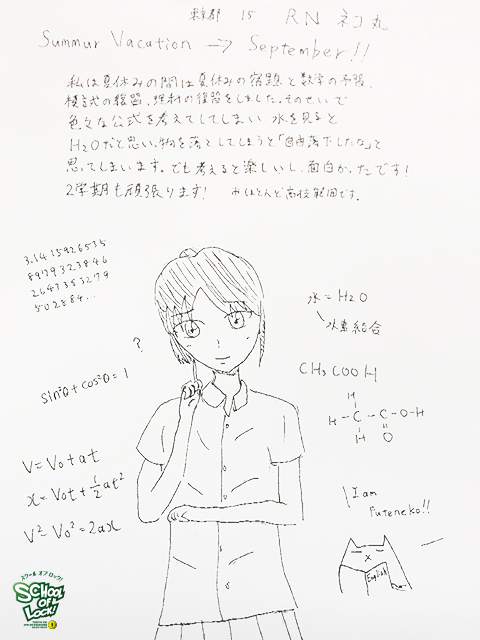 東京都 15 RN ネコ丸
Summur Vacation → September!!
私は夏休みの間は夏休みの宿題と数学の予習、
模試の復習、理科の復習をしました。そのせいで
色々な公式を考えてしてしまい 水を見ると
H2Oだと思い、物を落としてしまうと「自由落下したな」と
思ってしまいます。でも考えると楽しいし、面白かったです！
2学期も頑張ります！ ※ほとんど高校範囲です。
3.1415926535
8979323846
2643383279
502884...
?
水=H2O
水素結合
sin²θ+cos²θ=1
CH3COOH
H
H-C-C-O-H
H O
V=V0+at
x=V0t+1/2at²
V²-V0²=2ax
I am
Futeneko!!
English
スクール オブ ロック!
SCHOOL
OF
LOCK!